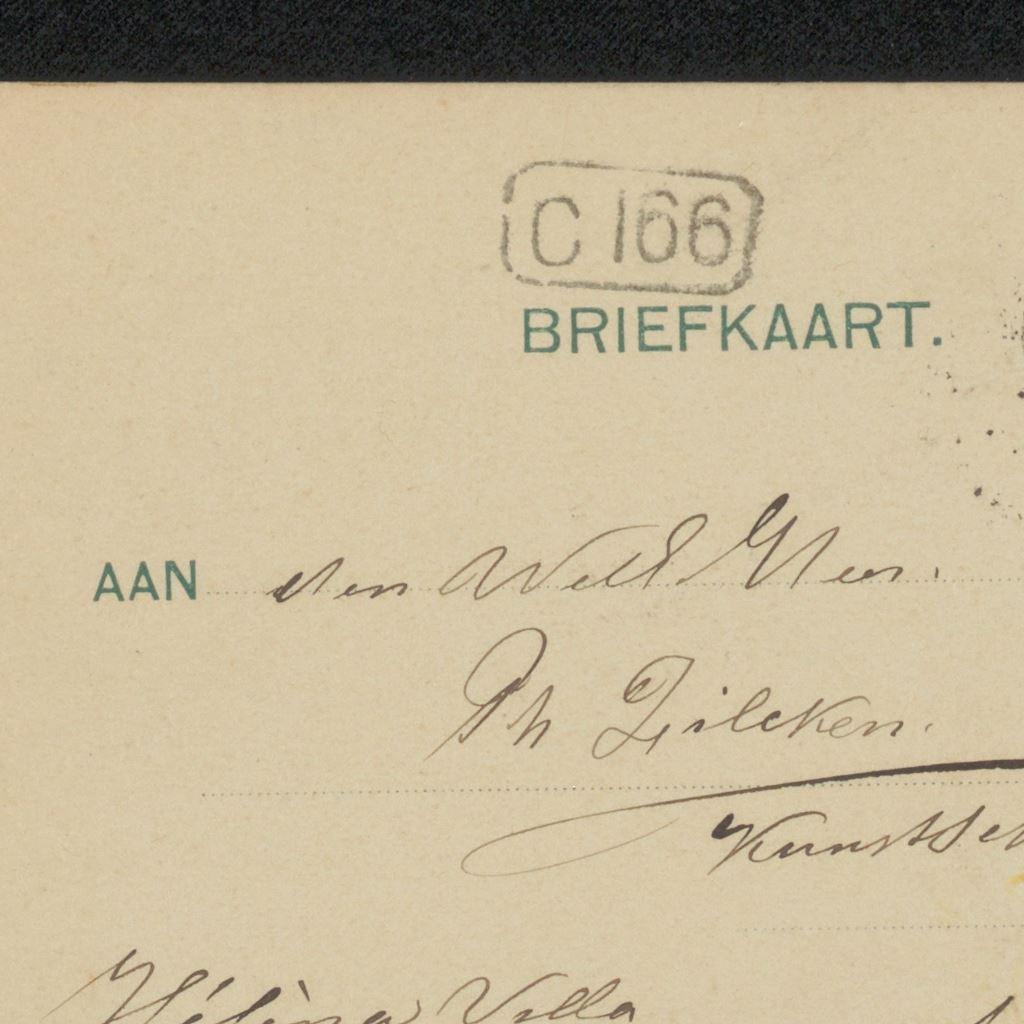 C 166
BRIEFKAART.
AAN den WelEd. Heer.
Ph Zilcken.
Kunstsch
Hélène Villa